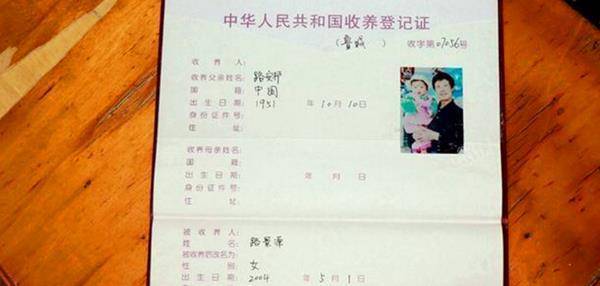 中华人民共和国收养登记证
(鲁城) 收字第07056号
收养人:
收养父亲姓名: 路安邦
国籍: 中国
出生日期: 1951 年 10 月 10 日
身份证件号:
住址:
收养母亲姓名:
国籍:
出生日期: 年 月 日
身份证件号:
住址:
被收养人:
姓名: 路景源
被收养后改名为:
性别: 女
出生日期: 2004 年 5 月 1 日